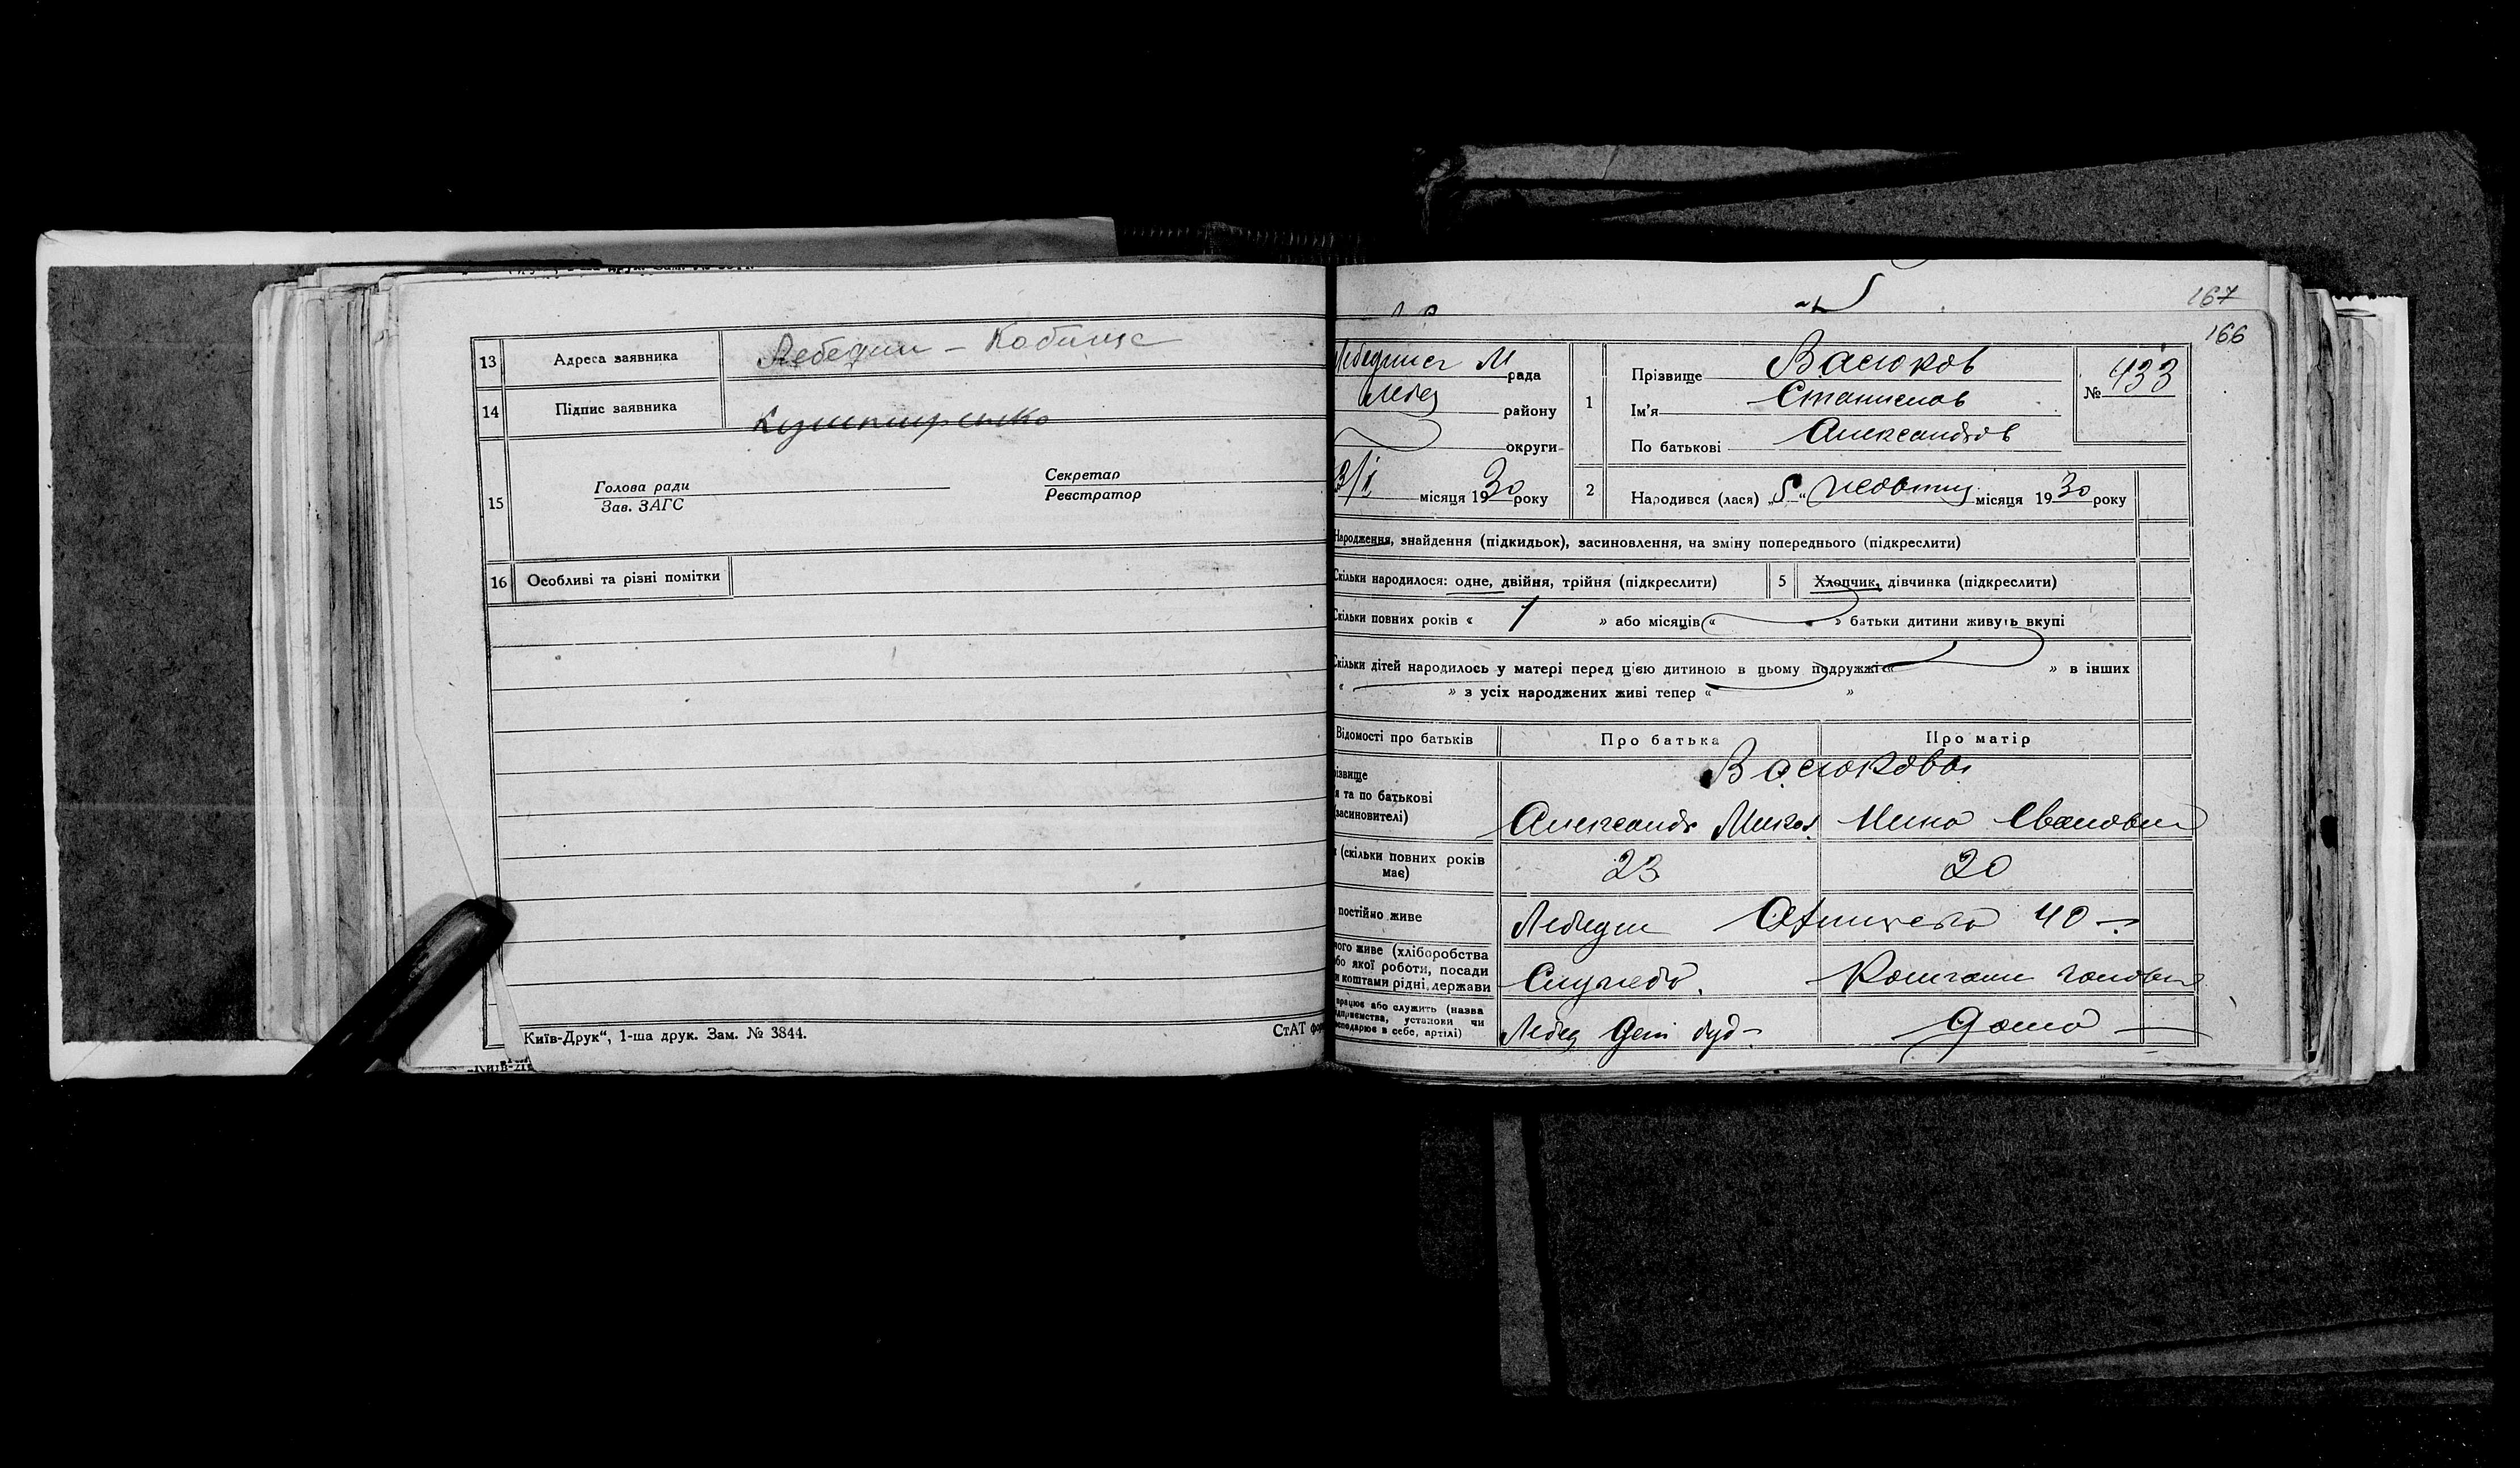 13 Адреса заявника Лебедин – Кобиже
14 Підпис заявника Кушниренко
15 Голова ради Секретар
Зав. ЗАГС Реєстратор
16 Особливі та різні помітки
Київ-Друк“, 1-ша друк. Зам. № 3844. СтАТ
167
166
М рада
Лебед району
округи
місяця 1930 року
1 Прізвище Васюков
Ім'я Станислав
По батькові Александров
№ 433
2 Народився (лася) „5“ жовтня місяця 1930 року
Народження, знайдення (підкидьок), засиновлення, на зміну попереднього (підкреслити)
Скільки народилося: одне, двійня, трійня (підкреслити) 5 Хлопчик, дівчинка (підкреслити)
Скільки повних років « 1 » або місяців « » батьки дитини живуть вкупі
Скільки дітей народилось у матері перед цією дитиною в цьому подружжі « » в інших
« » з усіх народжених живі тепер « »
Відомості про батьків Про батька Про матір
ізвище Васюкови
я та по батькові
(засиновителі) Александр Микол. Нина Ивановна
(скільки повних років
має) 23 20
постійно живе Лебедин 40
чого живе (хліборобства
бо якої роботи, посади
и коштами рідні, держави Служебо. Коштами чоловіка
працює або служить (назва
ідприємства, установи чи
господарює в себе, артілі) Лебед Дет буд – Дома –